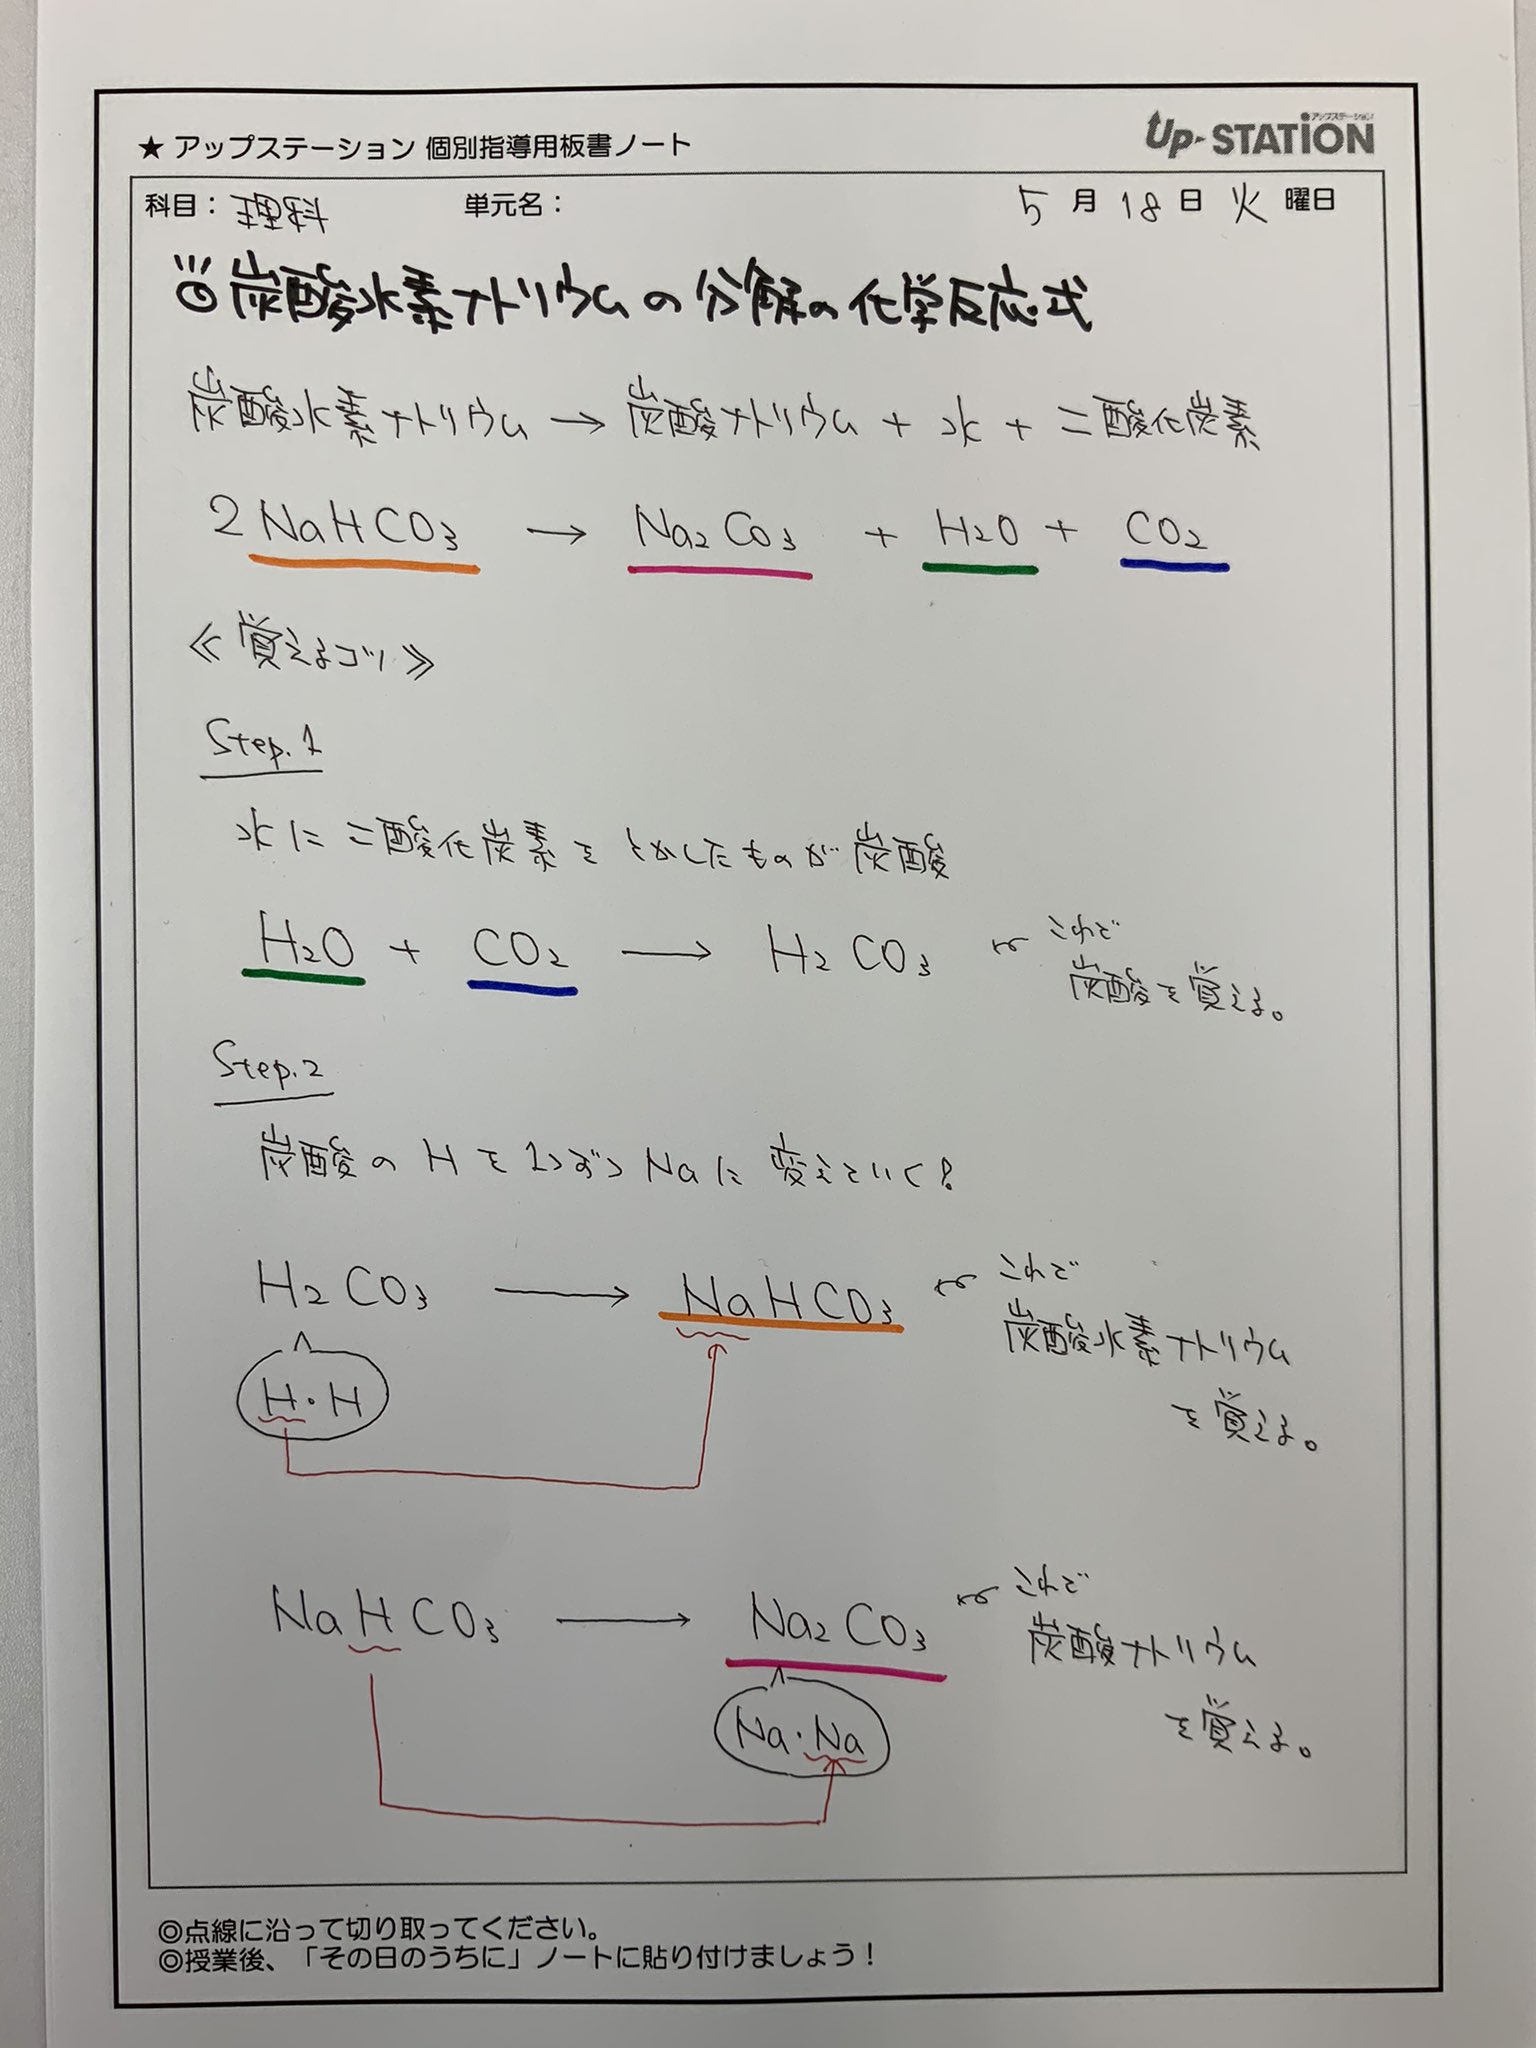 ★ アップステーション 個別指導用板書ノート
アップステーション
Up-STATION
科目：理科 単元名： 5月18日火曜日
◎炭酸水素ナトリウムの分解の化学反応式
炭酸水素ナトリウム → 炭酸ナトリウム + 水 + 二酸化炭素
2NaHCO₃ → Na₂CO₃ + H₂O + CO₂
≪覚えるコツ≫
Step.1
水に二酸化炭素をとかしたものが炭酸
H₂O + CO₂ → H₂CO₃ これで
炭酸を覚える。
Step.2
炭酸のHを1つずつNaに変えていく!
H₂CO₃ → NaHCO₃ これで
炭酸水素ナトリウム
H・H
を覚える。
NaHCO₃ → Na₂CO₃ これで
炭酸ナトリウム
Na・Na
を覚える。
◎点線に沿って切り取ってください。
◎授業後、「その日のうちに」ノートに貼り付けましょう！